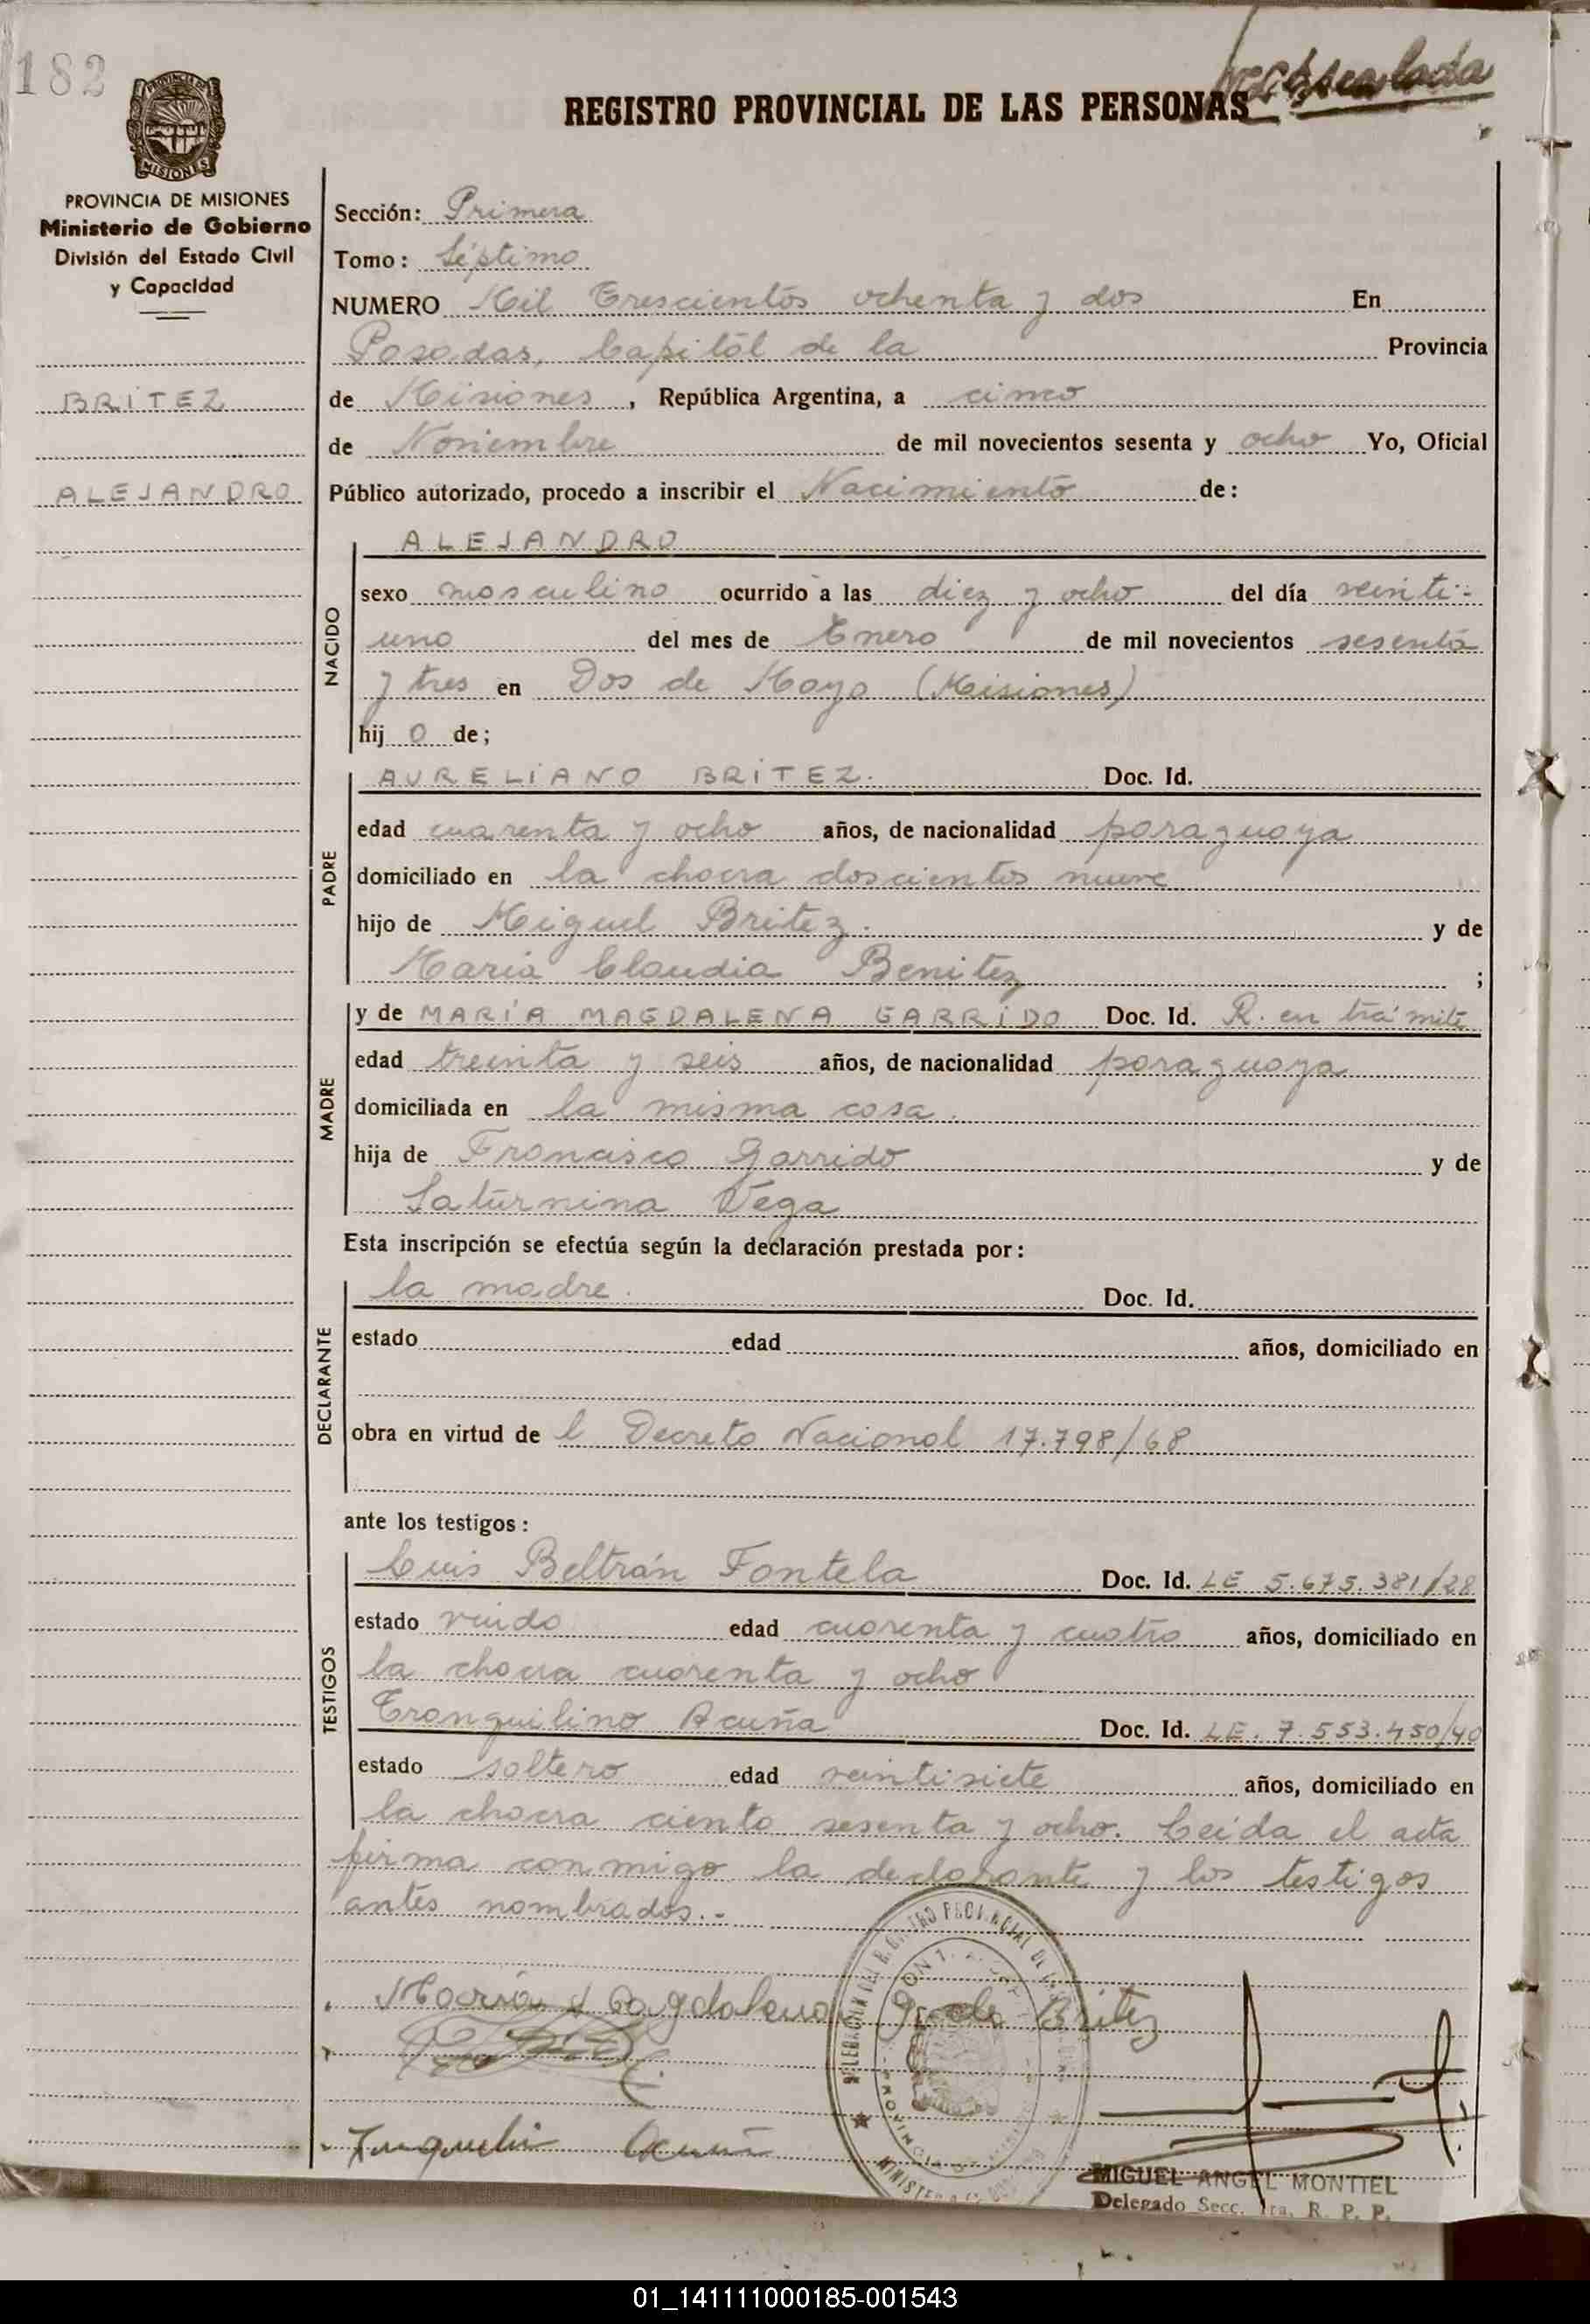 182
PROVINCIA DE MISIONES
Ministerio de Gobierno
División del Estado Civil
y Capacidad
BRITEZ
ALEJANDRO
REGISTRO PROVINCIAL DE LAS PERSONAS
Sección: Primera
Tomo: Séptimo
NUMERO Mil Trescientos ochenta y dos En
Posadas, Capital de la Provincia
de Misiones, República Argentina, a cinco
de Noviembre de mil novecientos sesenta y ocho Yo, Oficial
Público autorizado, procedo a inscribir el Nacimiento de:
NACIDO
ALEJANDRO
sexo masculino ocurrido a las diez y ocho del día veinti-
uno del mes de Enero de mil novecientos sesenta
y tres en Dos de Mayo (Misiones)
hijo de;
PADRE
AURELIANO BRITEZ. Doc. Id.
edad cuarenta y ocho años, de nacionalidad paraguaya
domiciliado en la chacra doscientos nueve
hijo de Miguel Britez. y de
Maria Claudia Benitez ;
MADRE
y de MARÍA MAGDALENA GARRIDO Doc. Id. R. en trámite
edad treinta y seis años, de nacionalidad paraguaya
domiciliada en la misma casa.
hija de Francisco Garrido y de
Saturnina Vega
Esta inscripción se efectúa según la declaración prestada por:
DECLARANTE
la madre. Doc. Id.
estado edad años, domiciliado en
obra en virtud de l Decreto Nacional 17.798/68
ante los testigos:
TESTIGOS
Luis Beltrán Fontela Doc. Id. LE 5.675.381/28
estado viudo edad cuarenta y cuatro años, domiciliado en
la chacra cuarenta y ocho
Tranquilino Acuña Doc. Id. LE. 7.553.450/40
estado soltero edad veintisiete años, domiciliado en
la chacra ciento sesenta y ocho. Leída el acta
firma conmigo la declarante y los testigos
antes nombrados.-
María Magdalena Britez
Acuña
MIGUEL ANGEL MONTIEL
Delegado Secc. 1ra. R. P. P.
01_141111000185-001543